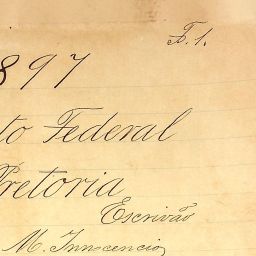 F. 1.
1897
to Federal
Pretoria
Escrivão
M. Innocencio